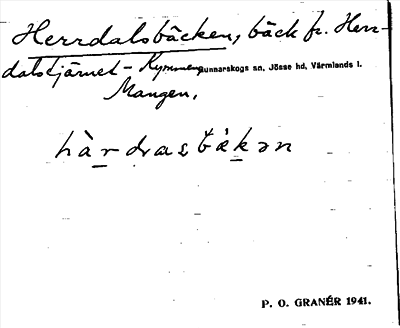 Herrdalsbäcken, bäck fr. Herr-
dalstjärnet - Kymmen, Gunnarskogs sn, Jösse hd, Värmlands l.
Mangen.
hàrdrasbäkən
P. O. GRANÉR 1941.